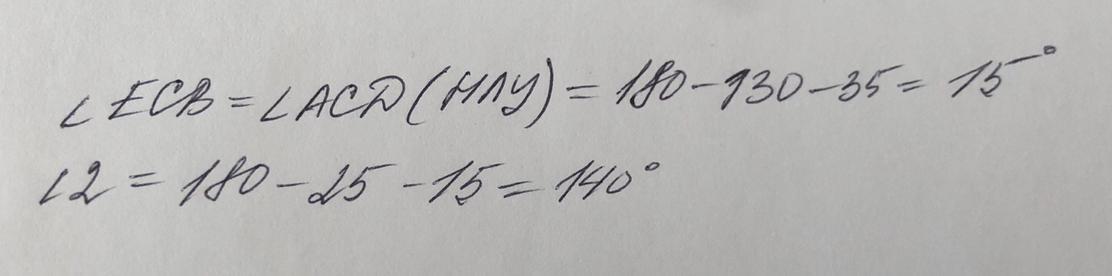 ∠ECB = ∠ACD (НЛУ) = 180 - 130 - 35 = 15°
∠2 = 180 - 25 - 15 = 140°